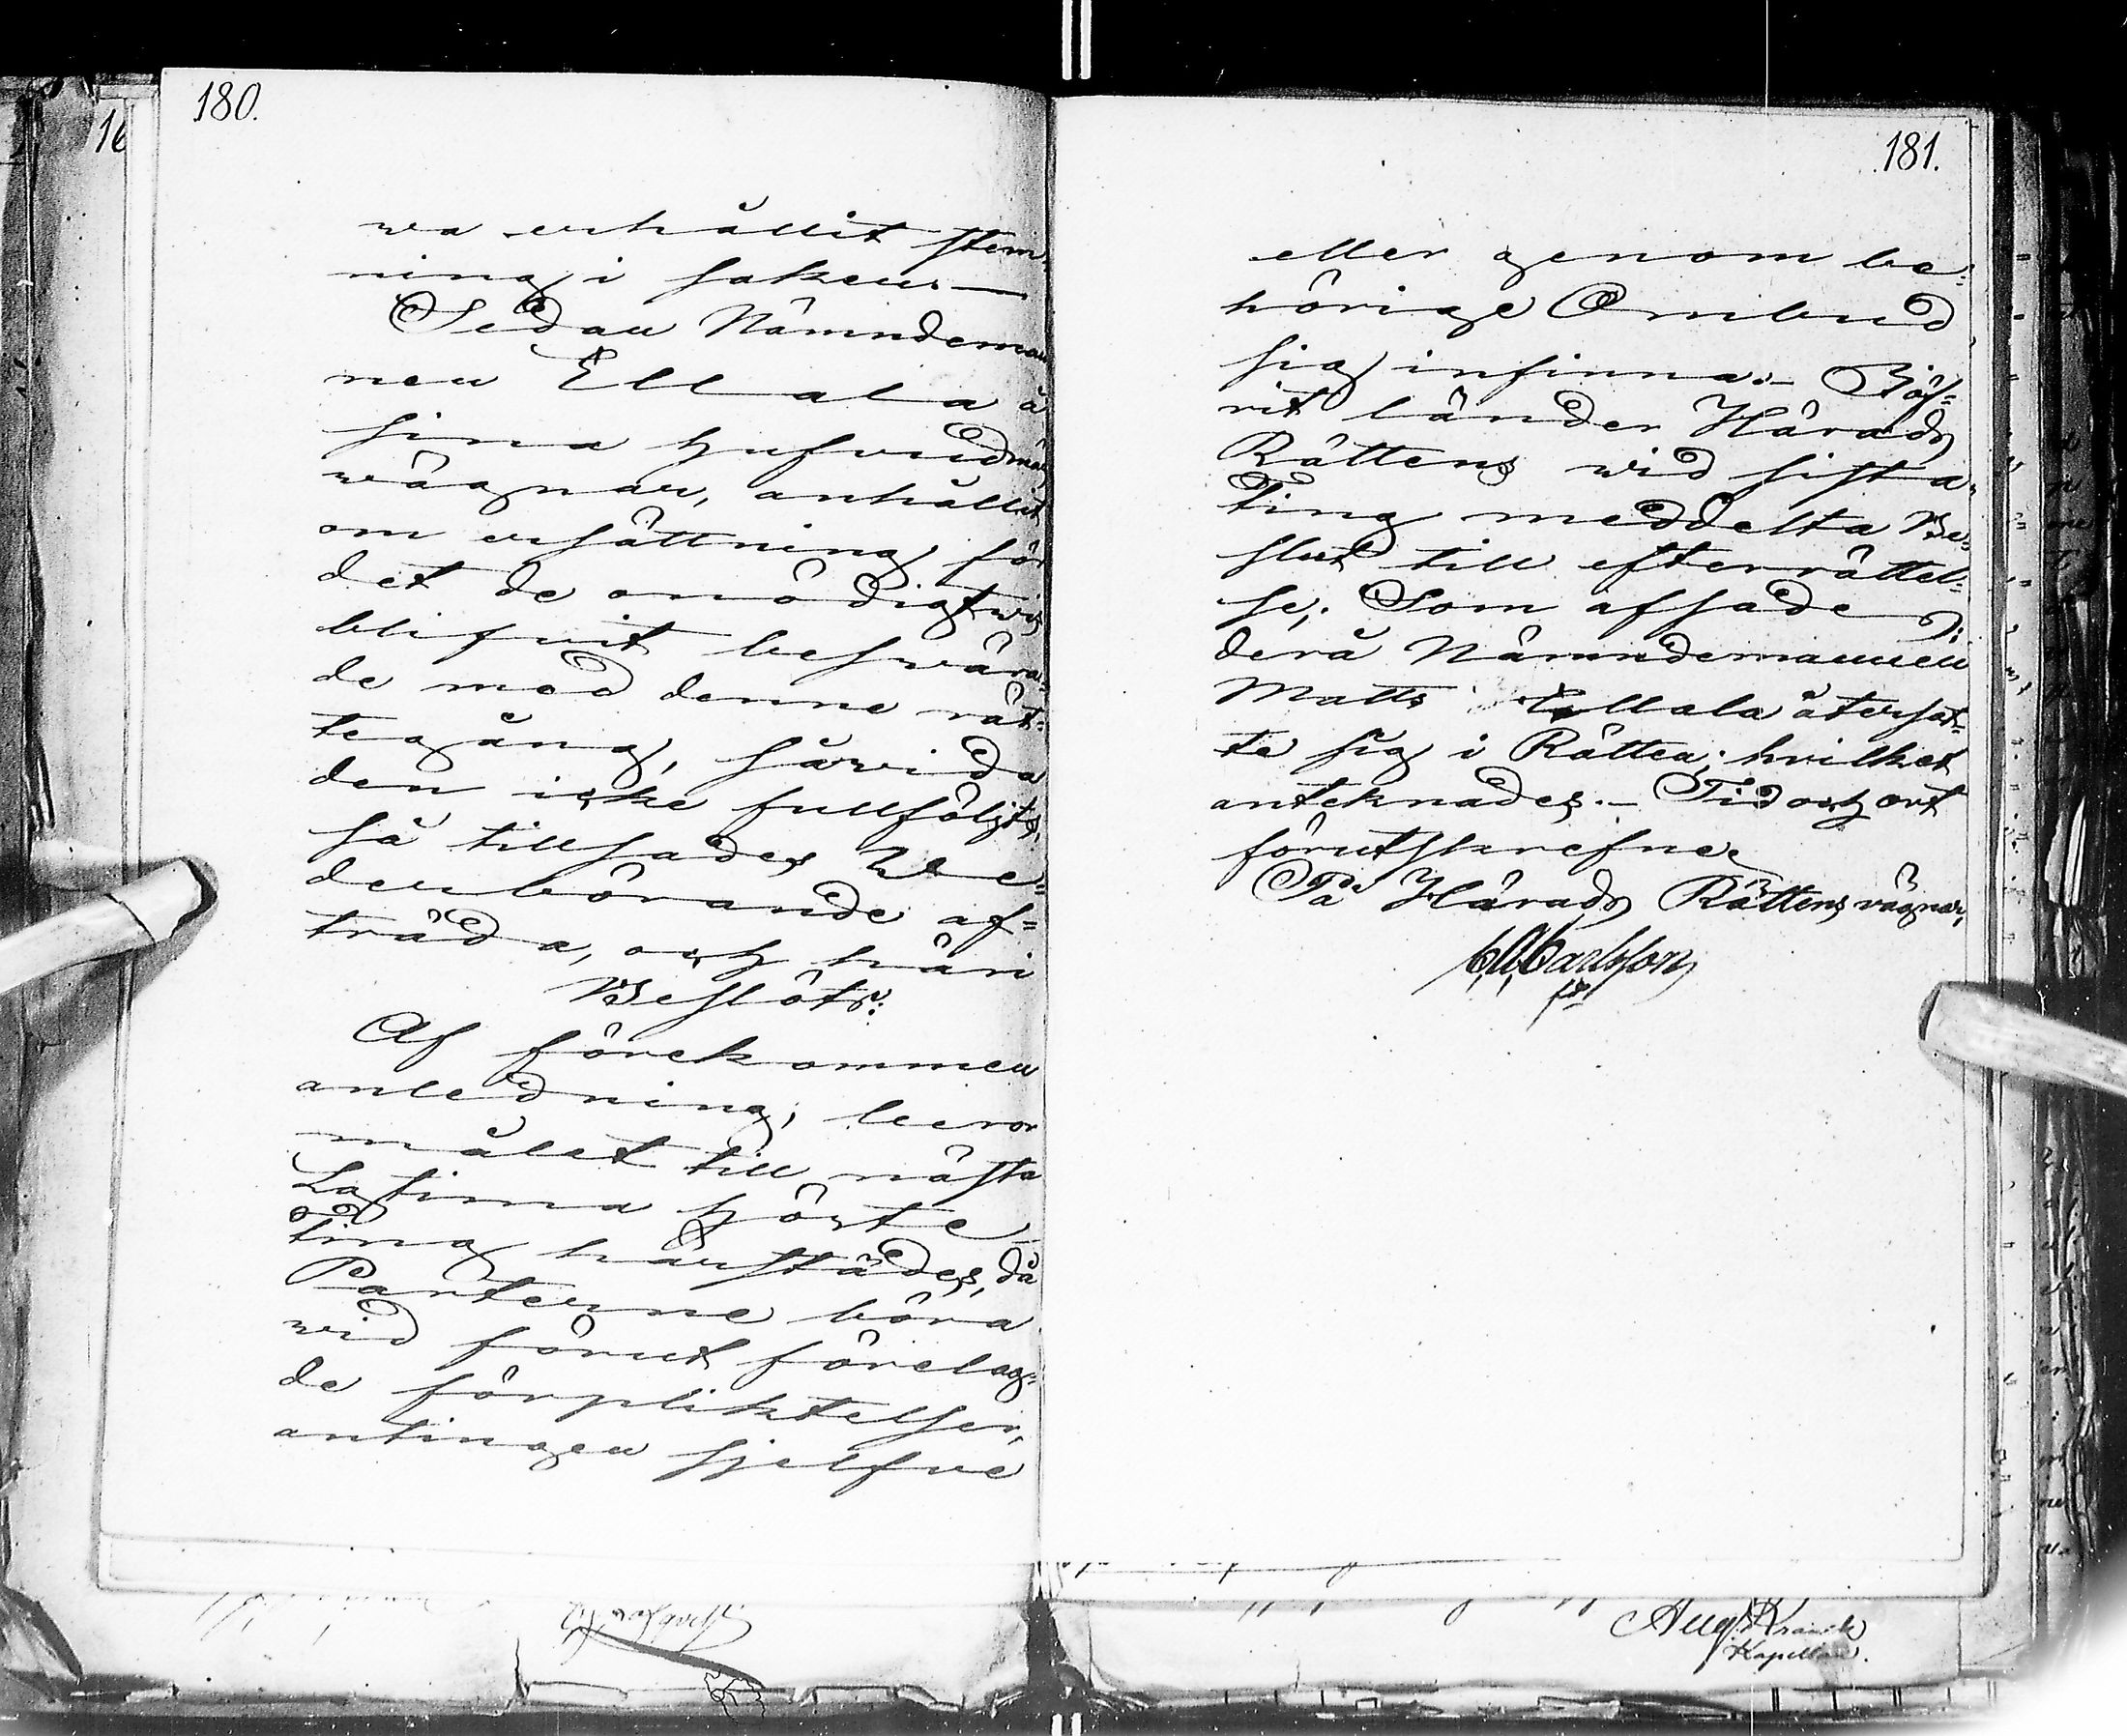 180.
wa erhållit stem¬
ning i saken.—
Sedan Nämndeman
nen Ellala å
sina hufvudmäns
wägnar, anhållit
om ersättning för
det de onödigtwis
blifvit beswära¬
de med denne rät¬
tegång, såwida
den icke fullföljts,
så tillsades We¬
derbörande af¬
träda, och häri
Beslöts:
Af förekommen
anledning, beror
målet till nästa
Lagtima höste
Ting härstädes, då
Parterne böra
wid förut förelag¬
de förpliktelser,
antingen sjelfve
181.
eller genom be¬
hörige Ombud
sig infinna.— Böf¬
rit länder Härads
Rättens wid sista
Ting meddelta Be¬
slut till efterrättel¬
se; Som afsade
derå Nämndemannen
Matts Ellala återsat¬
te sig i Rätten; hvilket
anteknades.— Tid och ort
förutskrefne
På Härads Rättens vägnar,
C A Carlsson
Aug Kranck
Kapellan.